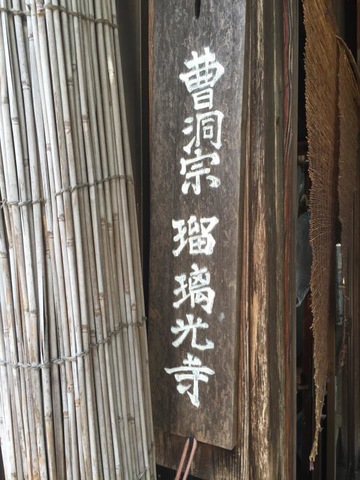 曹洞宗 瑠璃光寺